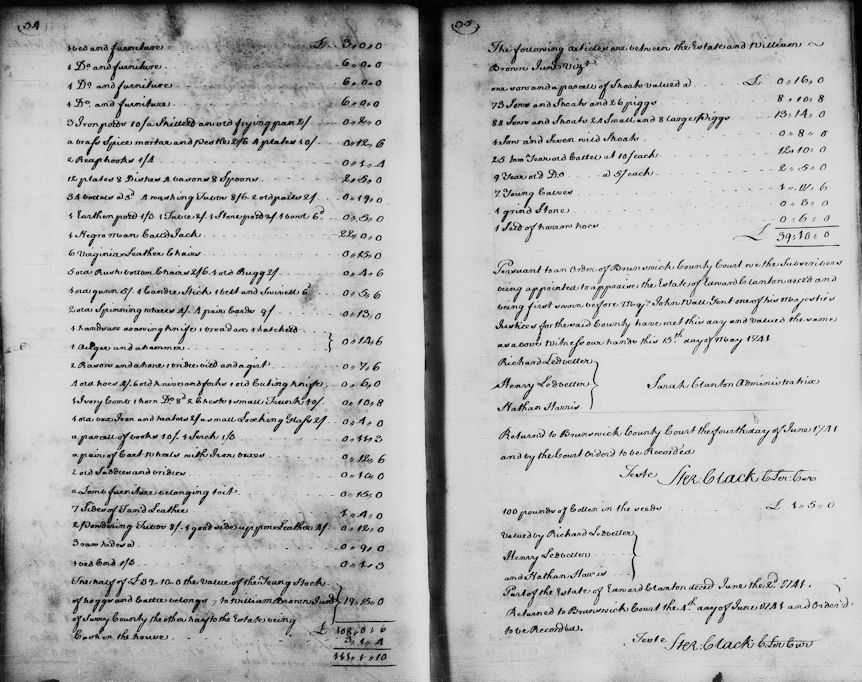 34
1 Bed and furniture £ 3,,0,,0
1 Do and furniture 6,,0,,0
1 Do and furniture 6,,0,,0
1 Do and furniture 6,,0,,0
3 Iron pots 10/ a Skillet an old frying pan 2/
a brass Spice mortar and Pestle 2/6 4 plates 10/ 0,,12,,6
2 Reap hooks 1/4 0,,1,,4
12 plates 8 Dishes 4 basons 8 Spoons 2,,5,,0
34 bottels a 3d 4 washing Tubbs 8/6 2 old pails 2/ 0,,19,,0
1 Earthen pott 1/3 1 Table 2/ 1 Stone pott 2/ 1 bowl 6d 0,,5,,0
1 Negro man Calld Jack 22,,0,,0
6 Virginia Leather Chairs 0,,15,,0
5 old Rush bottom Chairs 2/6 1 old Rugg 2/ 0,,4,,6
1 old gunn 5/ 1 Candle Stick 1 belt and Swivell 6d 0,,5,,6
2 old Spinning wheels 4/ 4 pair Cards 9/ 0,,13,,0
1 handsaw drawing knife 1 broad ax 1 hatchett
1 Auger and a hammer 0,,14,,6
2 Rasors and a hone 1 bridle bitt and a girt 0,,7,,6
4 old hoes 4/6 old knives and forks 1 old Cuting knife 0,,6,,0
1 Ivory Comb 1 horn Do 8d 2 Chests 1 small Trunk 10/ 0,,10,,8
1 old box Iron and heaters 2/ a small Looking Glass 2/ 0,,4,,0
a parcell of books 10/ 1 Serch 1/3 0,,11,,3
a pair of Cart wheels with Iron boxes 0,,12,,6
2 old Saddles and bridles 0,,10,,0
a Loom furniture belonging to it 0,,15,,0
7 Sides of Tan'd Leather 1,,4,,0
2 Powdering Tubbs 8/ 1 good side upper Leather 4/ 0,,12,,0
3 raw hides a 0,,9,,0
1 bed Cord 1/3 0,,1,,3
The half of £39.10.0 the value of the Young Stock
of hoggs and Cattle belongs to William Brown Junr 19,,15,,0
of Surry County the other half to the Estate being
£ 108,,0,,6
Cash in the house 3,,1,,4
111,,1,,10
35
The following articles are between the Estate and William
Brown Junr Vizt
one sow and a parcell of Shoats valued a £ 0,,16,,0
73 Sows and Shoats and 26 piggs 8,,10,,8
88 Sows and Shoats 24 Small and 8 larger Piggs 13,,14,,0
1 Sow and Seven wild Shoats 0,,8,,0
25 two Year old Cattel at 10/ each 12,,10,,0
9 Year old Do a 5/ each 2,,5,,0
7 Young Calves
1 grind Stone 0,,3,,0
1 Sett of harrow hoes 0,,6,,0
£ 39,,10,,0
Persuant to an Order of Brunswick County Court we the Subscribers
being appointed to appraise the Estate of Edward Clanton deced and
being first sworn before Majr John Wall Gent one of his Majestis
Justices for the said County have met this day and valued the same
as above Witness our hands this 15th day of May 1741
Richard Ledbetter
Henry Ledbetter Sarah Clanton Administratrix
Nathan Harris
Returned to Brunswick County Court the fourth day of June 1741
and by the Court Orderd to be Recorded
Teste Ster: Clack Cler Cur
100 pounds of Cotten in the seeds £ 1,,5,,0
Valued by Richard Ledbetter
Henry Ledbetter
and Nathan Harris
Part of the Estate of Edward Clanton deced June the 2d 1741.
Returned to Brunswick Court the 4th day of June 1741 and Order'd
to be Recorded.
Teste Ster: Clack Cler Cur